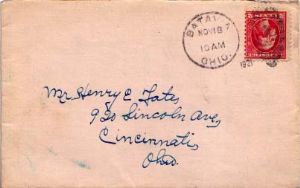 BATAVIA
NOV 18
10 AM
OHIO.
Mr. Henry C. Yates
920 Lincoln Ave,
Cincinnati
Ohio